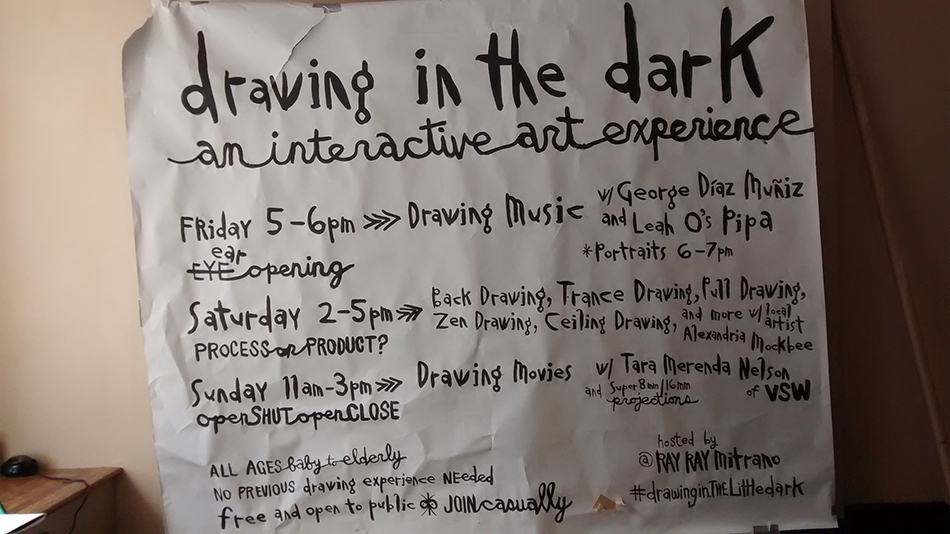 drawing in the dark
an interactive art experience
FRiday 5-6pm >>> Drawing Music w/ George Díaz Muñiz
and Leah O's Pipa
*Portraits 6-7pm
ear
EYE opening
Saturday 2-5pm >>> Back Drawing, Trance Drawing, Pull Drawing,
Zen Drawing, Ceiling Drawing, and more w/ local artist
Alexandria Mockbee
PROCESS or PRODUCT?
Sunday 11am-3pm >>> Drawing Movies w/ Tara Merenda Nelson
and Super 8mm/16mm projections of VSW
openSHUTopenCLOSE
ALL AGES baby to elderly
NO PREVIOUS drawing experience NEeded
free and open to public * JOIN casually
hosted by
@RAY RAY mitrano
#drawinginTHELittledark